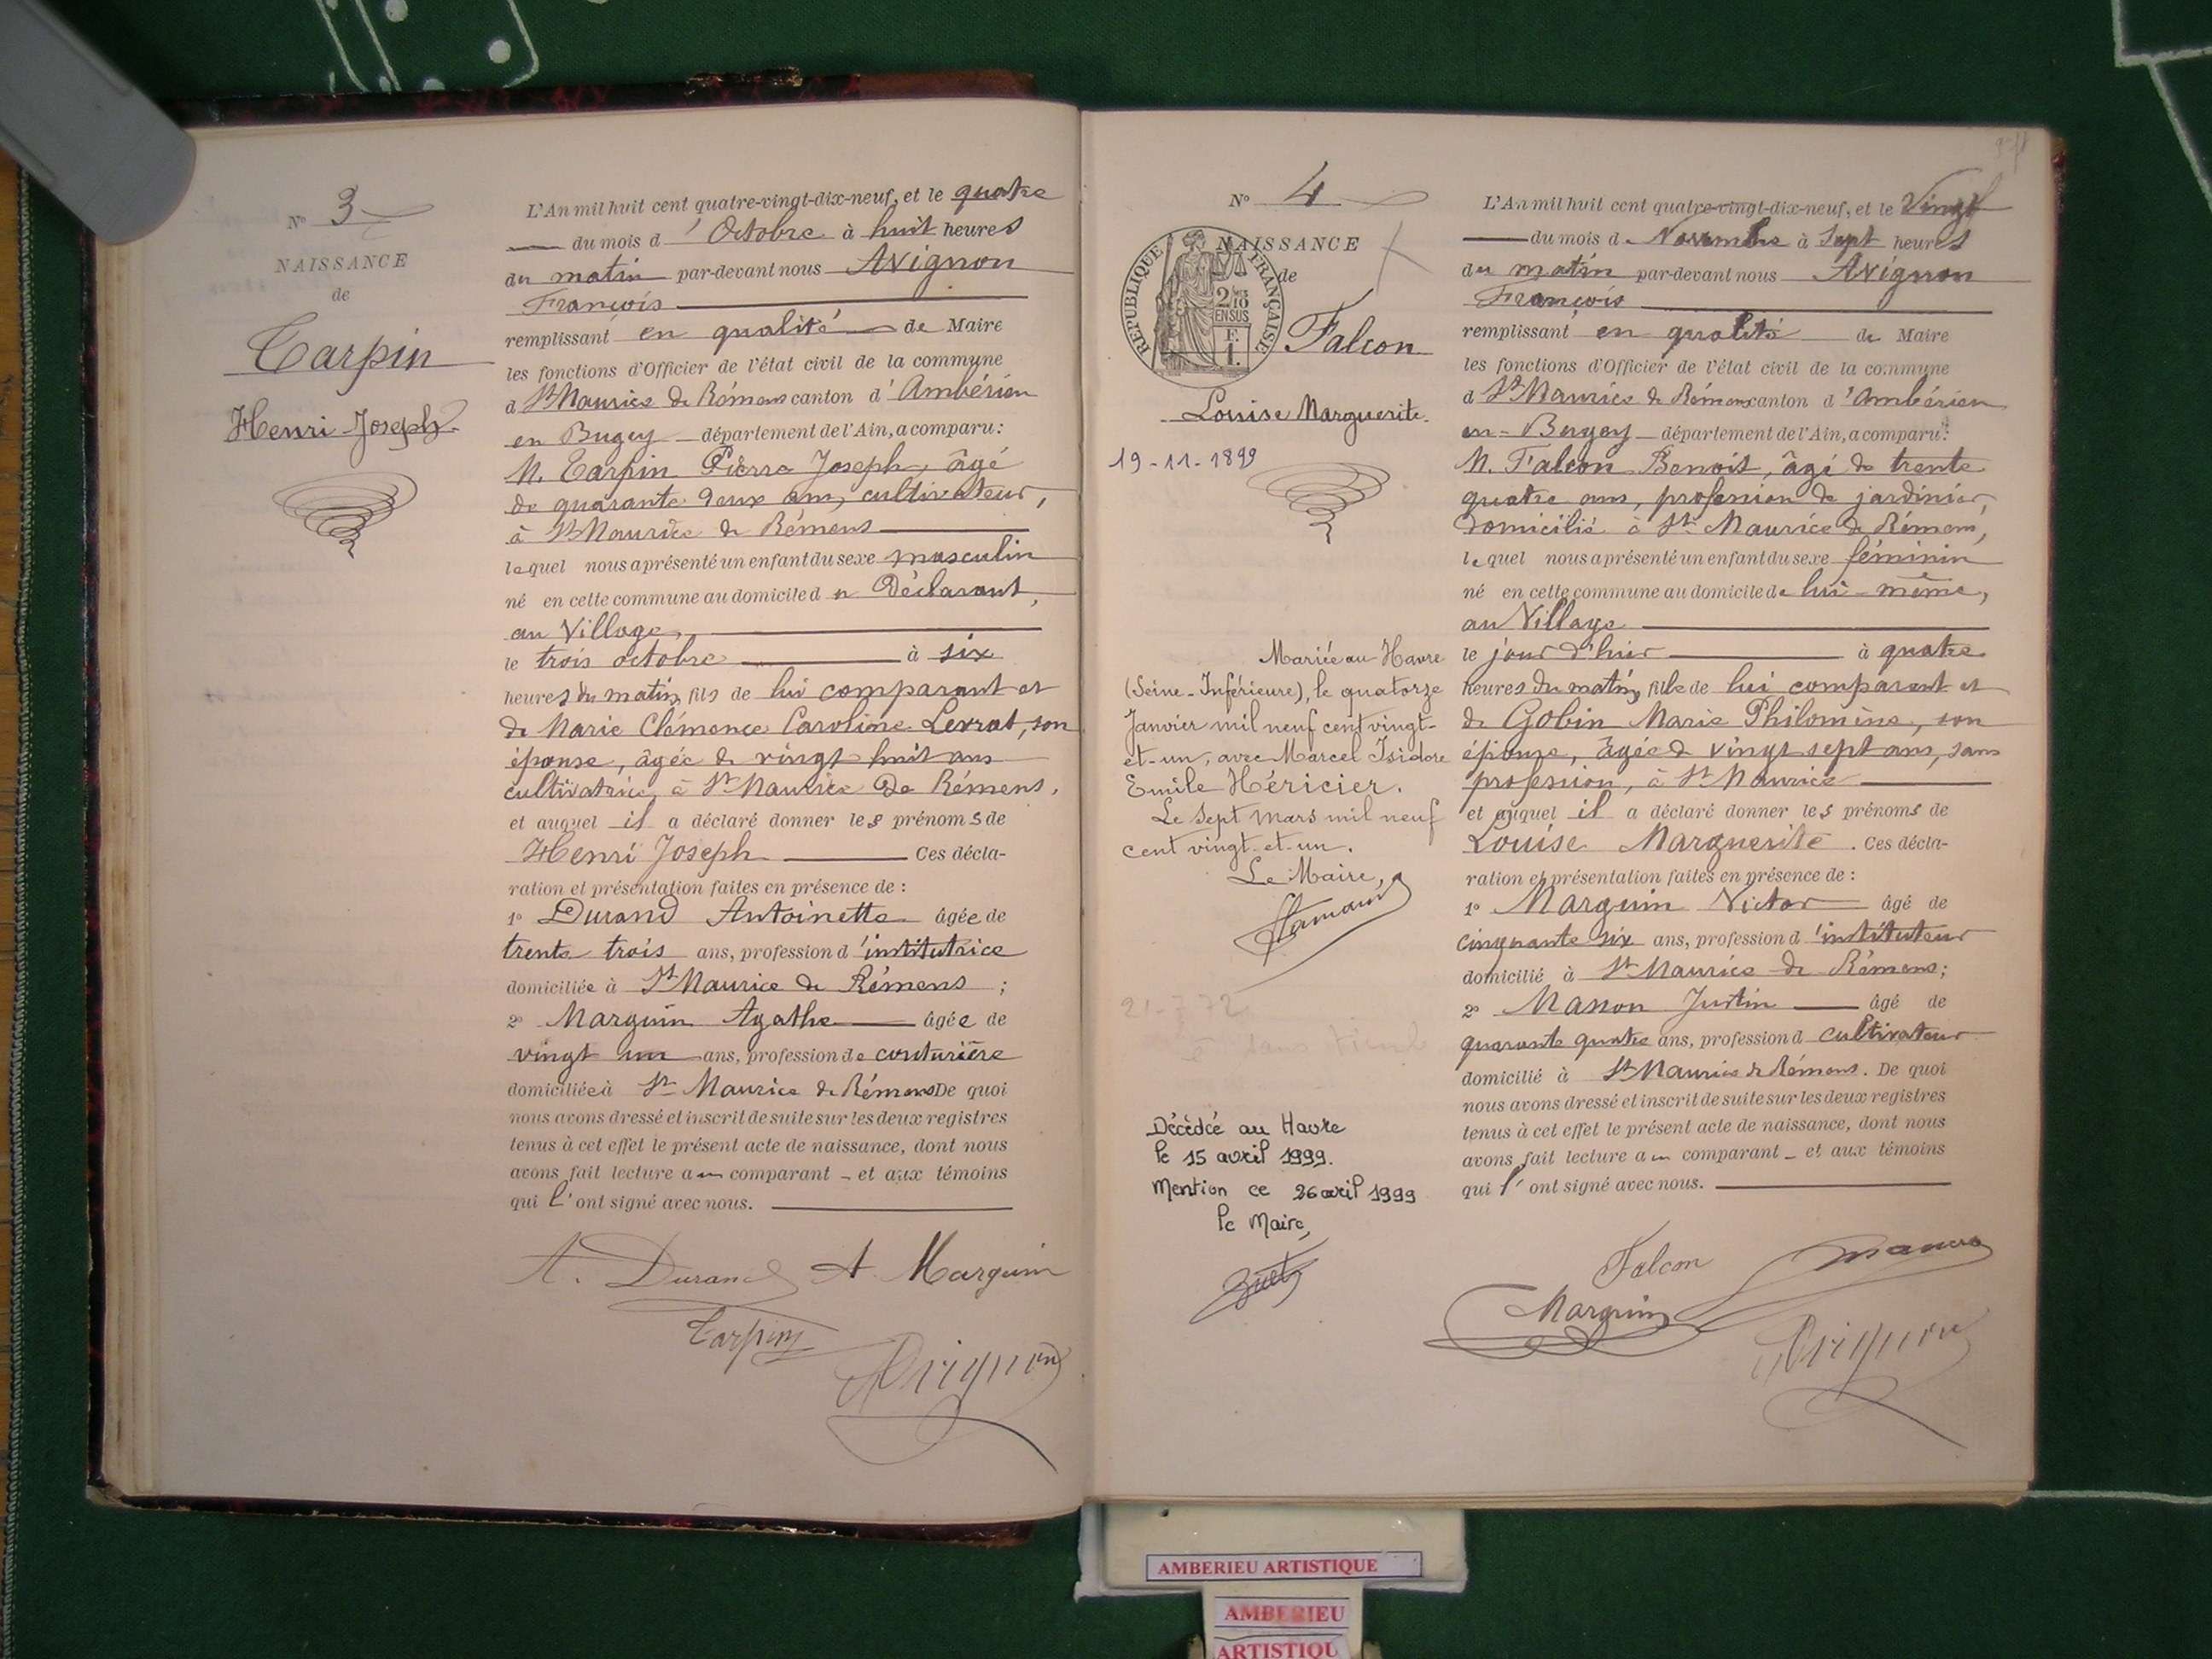 N° 3
NAISSANCE
de
Carpin
Henri Joseph
L'An mil huit cent quatre-vingt-dix-neuf, et le quatre
du mois d'Octobre à huit heures
du matin par-devant nous Avignon
François
remplissant en qualité de Maire
les fonctions d'Officier de l'état civil de la commune
d St Maurice de Rémens canton d'Ambérieu
en Bugey département de l'Ain, a comparu :
M. Carpin Pierre Joseph, âgé
de quarante deux ans, cultivateur,
à St Maurice de Rémens
lequel nous a présenté un enfant du sexe masculin
né en cette commune au domicile du Déclarant,
au Village,
le trois octobre à six
heures du matin, fils de lui comparant et
de Marie Clémence Caroline Levrat, son
épouse, âgée de vingt huit ans
cultivatrice, à St Maurice De Rémens,
et auquel il a déclaré donner les prénoms de
Henri Joseph Ces décla-
ration et présentation faites en présence de :
1° Durand Antoinette âgée de
trente trois ans, profession d'institutrice
domiciliée à St Maurice de Rémens ;
2° Marguin Agathe âgée de
vingt un ans, profession de couturière
domiciliée à St Maurice de Rémens De quoi
nous avons dressé et inscrit de suite sur les deux registres
tenus à cet effet le présent acte de naissance, dont nous
avons fait lecture au comparant et aux témoins
qui l'ont signé avec nous.
A. Durand A. Marguin
Carpin
Avignon
N° 4
NAISSANCE
de
RÉPUBLIQUE FRANÇAISE
2/10 EN SUS
F.
1.
Falcon
Louise Marguerite
19-11-1899
Mariée au Havre
(Seine-Inférieure), le quatorze
Janvier mil neuf cent vingt-
et-un, avec Marcel Isidore
Emile Héricier.
Le Sept Mars mil neuf
cent vingt-et-un.
Le Maire,
21-7 72
Décédée au Havre
le 15 avril 1999.
Mention ce 26 avril 1999
le Maire,
L'An mil huit cent quatre-vingt-dix-neuf, et le Vingt
du mois de Novembre à Sept heures
du matin par-devant nous Avignon
François
remplissant en qualité de Maire
les fonctions d'Officier de l'état civil de la commune
d St Maurice de Rémens canton d'Ambérieu
en-Bugey département de l'Ain, a comparu :
M. Falcon Benoit, âgé de trente
quatre ans, profession de jardinier,
domicilié à St Maurice de Rémens,
lequel nous a présenté un enfant du sexe féminin
né en cette commune au domicile de lui-même,
au Village
le jour d'hui à quatre
heures du matin, fille de lui comparant et
de Gobin Marie Philomène, son
épouse, âgée de vingt sept ans, sans
profession, à St Maurice
et auquel il a déclaré donner les prénoms de
Louise Marguerite. Ces décla-
ration et présentation faites en présence de :
1° Marguin Victor âgé de
cinquante six ans, profession d'instituteur
domicilié à St Maurice de Rémens ;
2° Manon Justin âgé de
quarante quatre ans, profession d cultivateur
domicilié à St Maurice de Rémens. De quoi
nous avons dressé et inscrit de suite sur les deux registres
tenus à cet effet le présent acte de naissance, dont nous
avons fait lecture au comparant et aux témoins
qui l'ont signé avec nous.
Falcon
Marguin
Avignon
AMBERIEU ARTISTIQUE
AMBERIEU
ARTISTIQU